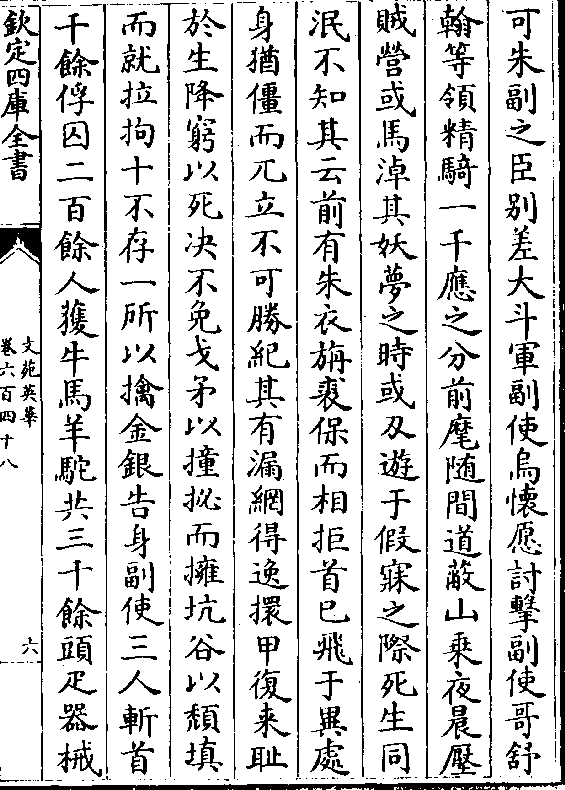 可朱副之臣别差大斗軍副使烏懷愿討擊副使哥舒
翰等領精騎一千應之分前麾随間道蔽山乗夜晨壓
賊營或馬淖其妖夢之時或刄遊于假寐之際死生同
泯不知其云前有朱衣旃裘保而相拒首已飛于異處
身猶僵而兀立不可勝紀其有漏網得逸擐甲復来耻
於生降窮以死决不免戈矛以撞㧙而擁坑谷以頹填
而就拉拘十不存一所以擒金銀告身副使三人斬首
千餘俘囚二百餘人獲牛馬羊駝共三十餘頭疋器械
欽定四庫全書
文苑英華
卷六百四十八
六